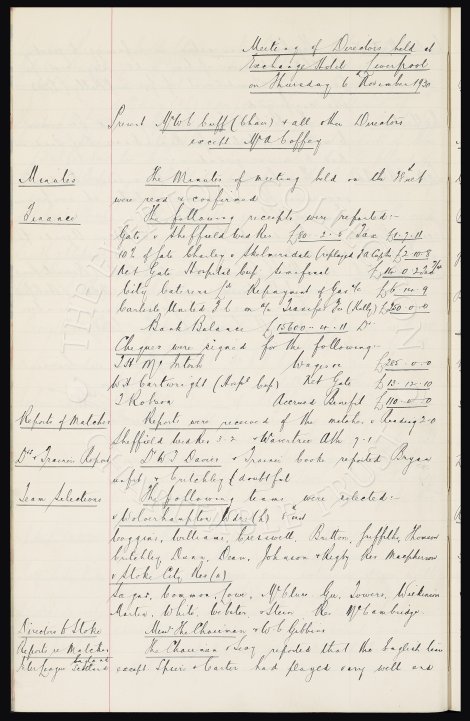 Meeting of Directors held at
Exchange Hotel Liverpool
on Thursday 6th November 1930
Present Mr W C Cuff (Chair) & all other Directors
except Mr A Coffey
Minutes
The Minutes of meeting held on the 28th ult
were read & confirmed
Finance
The following receipts were reported:-
Gate v Sheffield Wed Res £80-2-5 Tax £1-7-11
10% of Gate Chorley v Skelmersdale (replayed FA Cup tie £2-10-8
Net Gate Hospital Cup Semi final
City Caterers Repayment of Gas a/c £6-14-9
Carlisle United F C on a/c Transfer Fee (Kelly) £250-0-0
Bank Balance £15600-10-11 Dr
Cheques were signed for the following:-
T H McIntosh Wages &c £285-0-0
W J Cartwright (Hospl Cup) Net Gate £13-12-10
T Robson Accrued Benefit £110-0-0
Reports of Matches
Reports were received of the matches v Reading 2-0
Sheffield Wed Res 3-2 & Wavertree Ath 7-1
Drs & Trainers Report
Dr W J Davies & Trainer Cooke reported Bryan
unfit & Critchley (doubtful
Team Selections
The following teams were selected:-
v Wolverhampton Wdrs (h) 8th inst
Coggins, Williams, Cresswell, Britton, Griffiths, Thomson
Critchley Dunn, Dean, Johnson & Rigby Res Macpherson
v Stoke City Res (a)
Sagar, Common, Lowe, McClure Gee, Towers, Wilkinson
Martin, White, Webster, & Stein Res McCambridge.
Directors to Stoke
Messrs The Chairman & W C Gibbins
Report re Matches
Inter League Scotland
The Chairman & Secy reported that the English team
except Spence & Carter had played very well and